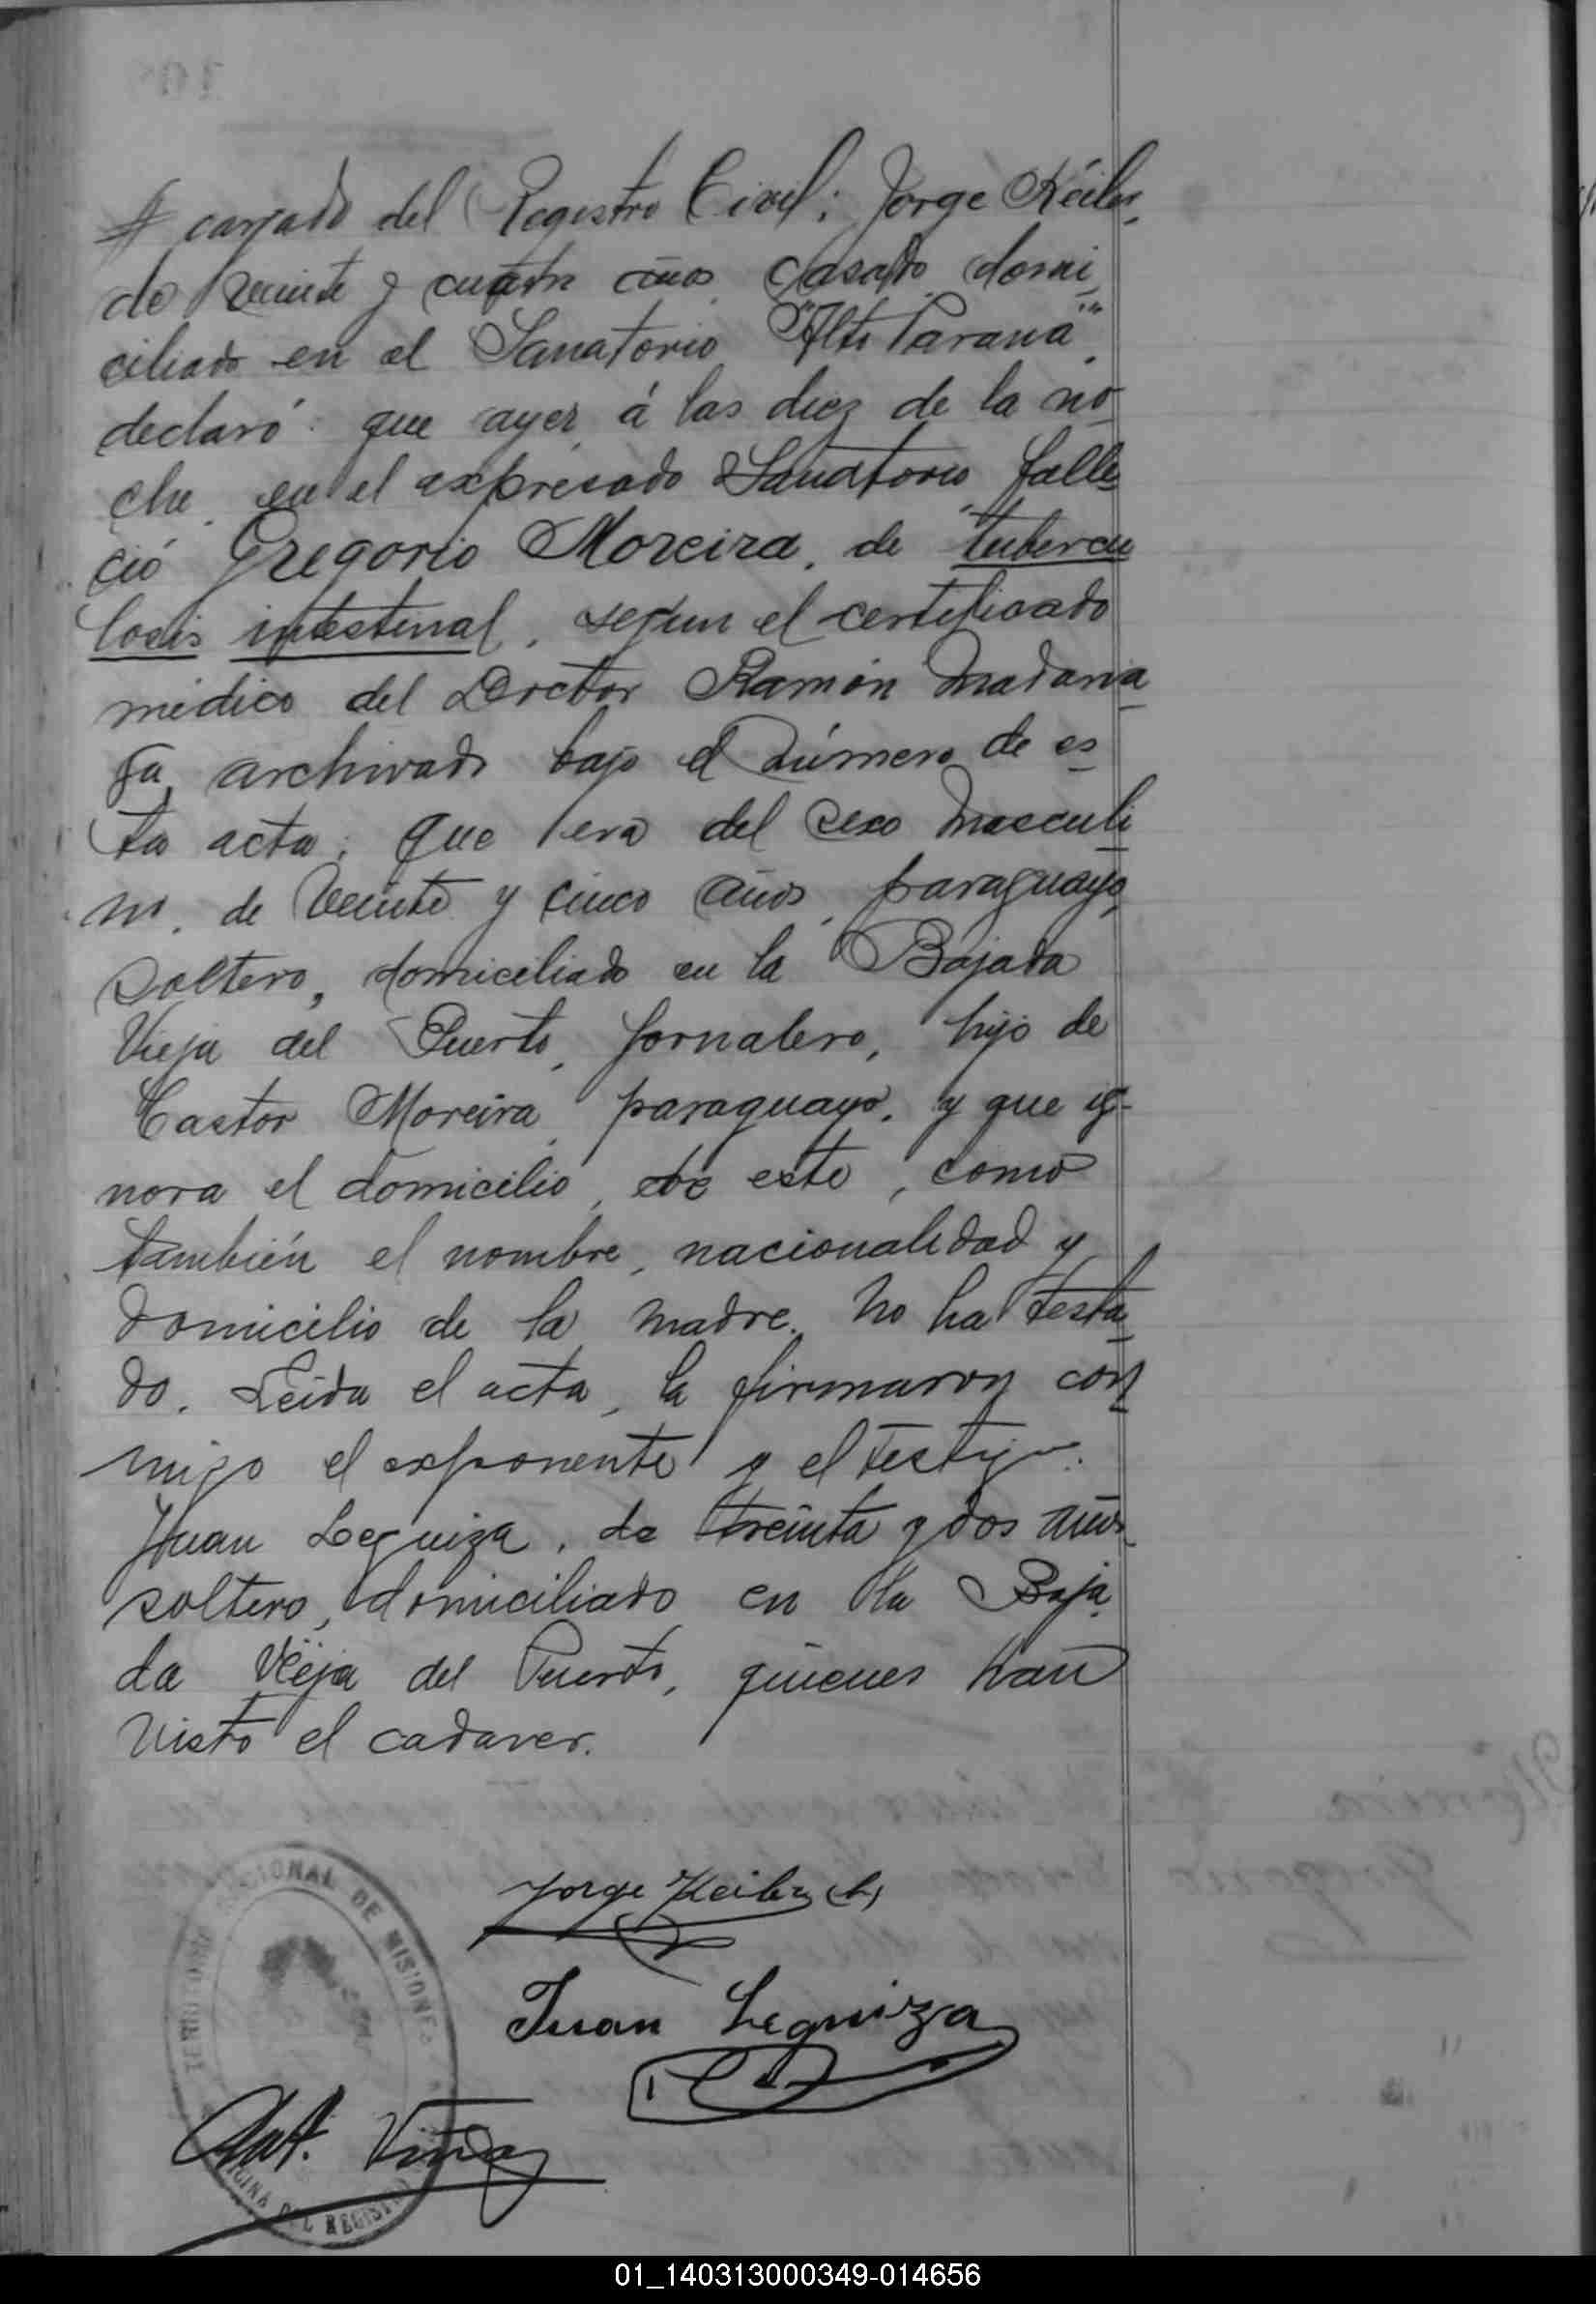 cargado del Registro Civil; Jorge Keiler,
de veinte y cuatro años, casado, domi
ciliado en el Sanatorio "Alto Paraná",
declaró: que ayer á las diez de la no
che, en el expresado Sanatorio, falle
ció Gregorio Moreira, de tubercu
losis intestinal, segun el certificado
médico del Doctor Ramón Madaria
ga, archivado bajo el número de es
ta acta; que era del sexo masculi
no, de veinte y cinco años, paraguayo,
soltero, domiciliado en la Bajada
Vieja del Puerto, jornalero, hijo de
Castor Moreira, paraguayo, y que ig-
nora el domicilio, de este, como
también el nombre, nacionalidad y
domicilio de la madre. No ha testa
do. Leida el acta, la firmaron con
migo el exponente y el testigo:
Juan Leguiza, de treinta y dos años
soltero, domiciliado en la Baja
da Vieja del Puerto, quienes han
visto el cadaver.
Jorge Keiler (h)
Juan Leguiza
Ant. Viña
NACIONAL DE MISIONES
OFICINA DEL REGISTRO
01_140313000349-014656